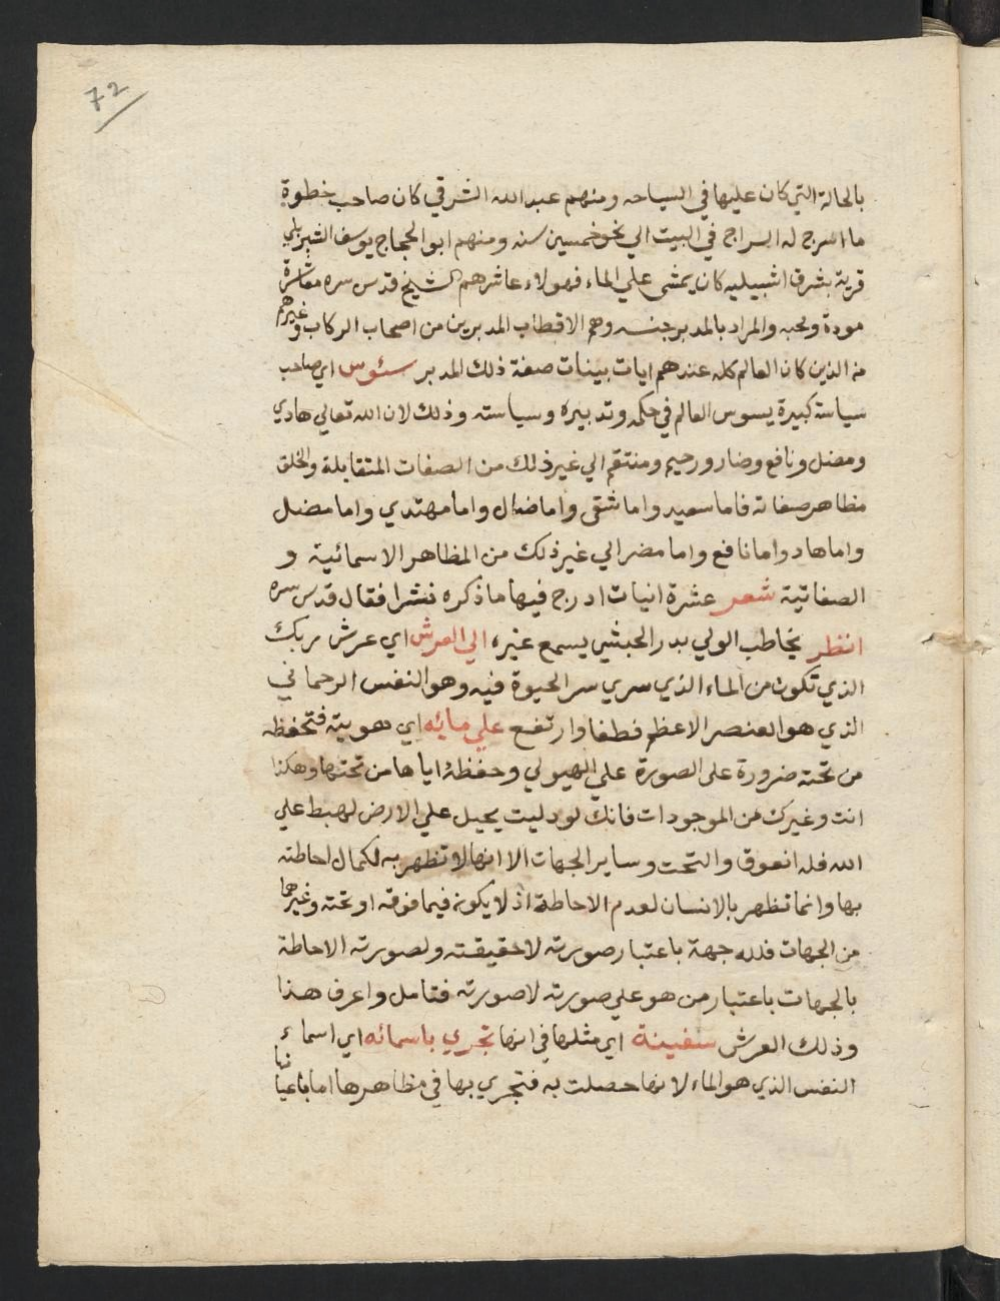 72
بالحالة التي كان عليها في السياحه ومنهم عبد الله الشرقي كان صاحب خطوة
ما اسرج له السراج في البيت الي نحو خمسين سنه ومنهم ابو الحجاج يوسف الشبربلي
قرية بشرق اشبيليه كان يمشي علي الماء فهولاء عاشرهم الشيخ قدس سره معاشرة
مودة ومحبه والمراد بالمدبر جنسه وهم الاقطاب المدبرين من اصحاب الركاب وغيرهم
من الذين كان العالم كله عندهم ايات بينات صفة ذلك المدبر سئوس اي صاحب
سياسة كبيرة يسوس العالم في حكمه وتدبيره وسياسته وذلك لان الله تعالي هادي
ومضل ونافع وضار ورحيم ومنتقم الي غير ذلك من الصفات المتقابلة والخلق
مظاهر صفاته فاما سعيد واما شقى واما ضال واما مهتدي واما مضل
واما هاد واما نافع واما مضر الي غير ذلك من المظاهر الاسمائية و
الصفاتية شعر عشرة ابيات ادرج فيها ما ذكره نثرا فقال قدس سره
انظر يخاطب الولي بدر الحبشي يسمع غيره الي العرش اي عرش ربك
الذي تكون من الماء الذي سري سر الحيوة فيه وهو النفس الرحماني
الذي هو العنصر الاعظم فطفا وارتفع علي مائه اي هويته فتحفظه
من تحته ضرورة على الصورة علي الهيولي وحفظه اياها من تحتها وهكذا
انت وغيرك من الموجودات فانك لو دليت بحبل علي الارض لهبط علي
الله فله الفوق والتحت وساير الجهات الا انها لا تظهر به لكمال احاطته
بها وانما تظهر بالانسان لعدم الاحاطة اذ لا يكون فيما فوقه او تحته وغيرهما
من الجهات فلله جهة باعتبار صورته لا حقيقته ولصورته الاحاطة
بالجهات باعتبار من هو علي صورته لا صورته فتامل واعرف هذا
وذلك العرش سفينة اي مثلها في انها تجري باسمائه اي اسماء
النفس الذي هو الماء لانها حصلت به فتجري بها في مظاهرها اما باعيانها